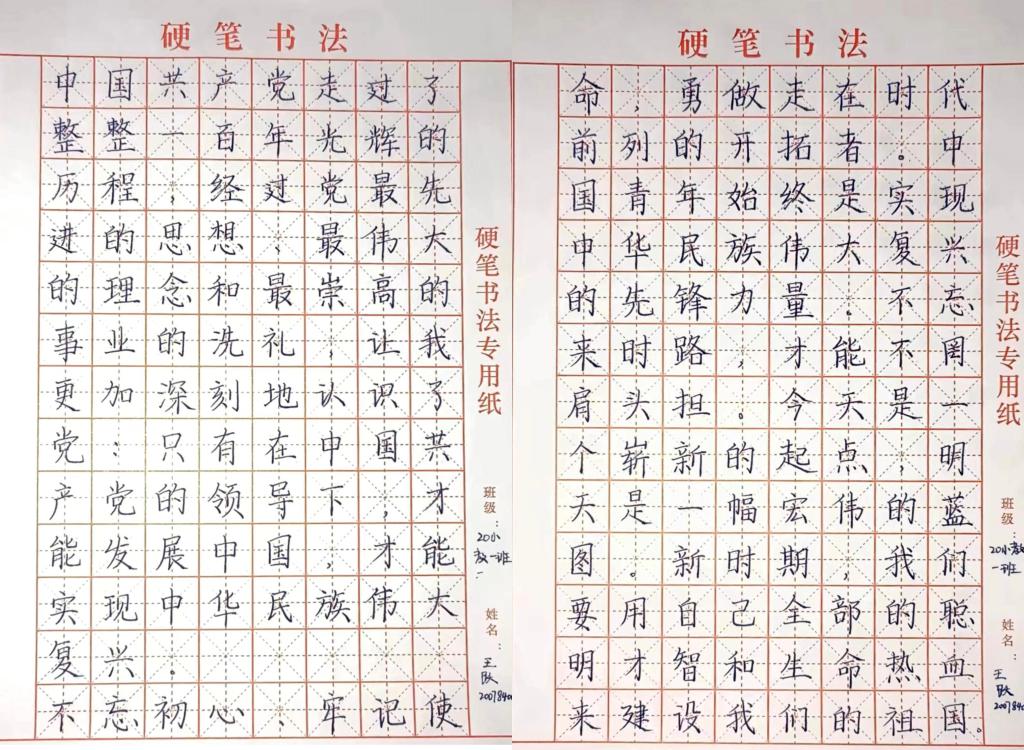 硬笔书法
中国共产党走过了
整整一百年光辉的
历程，经过党最先
进的思想、最伟大
的理念和最崇高的
事业的洗礼，让我
更加深刻地认识了
党：只有在中国共
产党的领导下，才
能发展中国，才能
实现中华民族伟大
复兴。
不忘初心、牢记使
硬笔书法专用纸
班级：
20小教一班
姓名：
硬笔书法
命，勇做走在时代
前列的开拓者。中
国青年始终是实现
中华民族伟大复兴
的先锋力量。不忘
来时路，才能不罔
肩头担。今天是一
个崭新的起点，明
天是一幅宏伟的蓝
图。新时期，我们
要用自己全部的聪
明才智和生命热血
来建设我们的祖国。
硬笔书法专用纸
班级：
20小教一班
姓名：